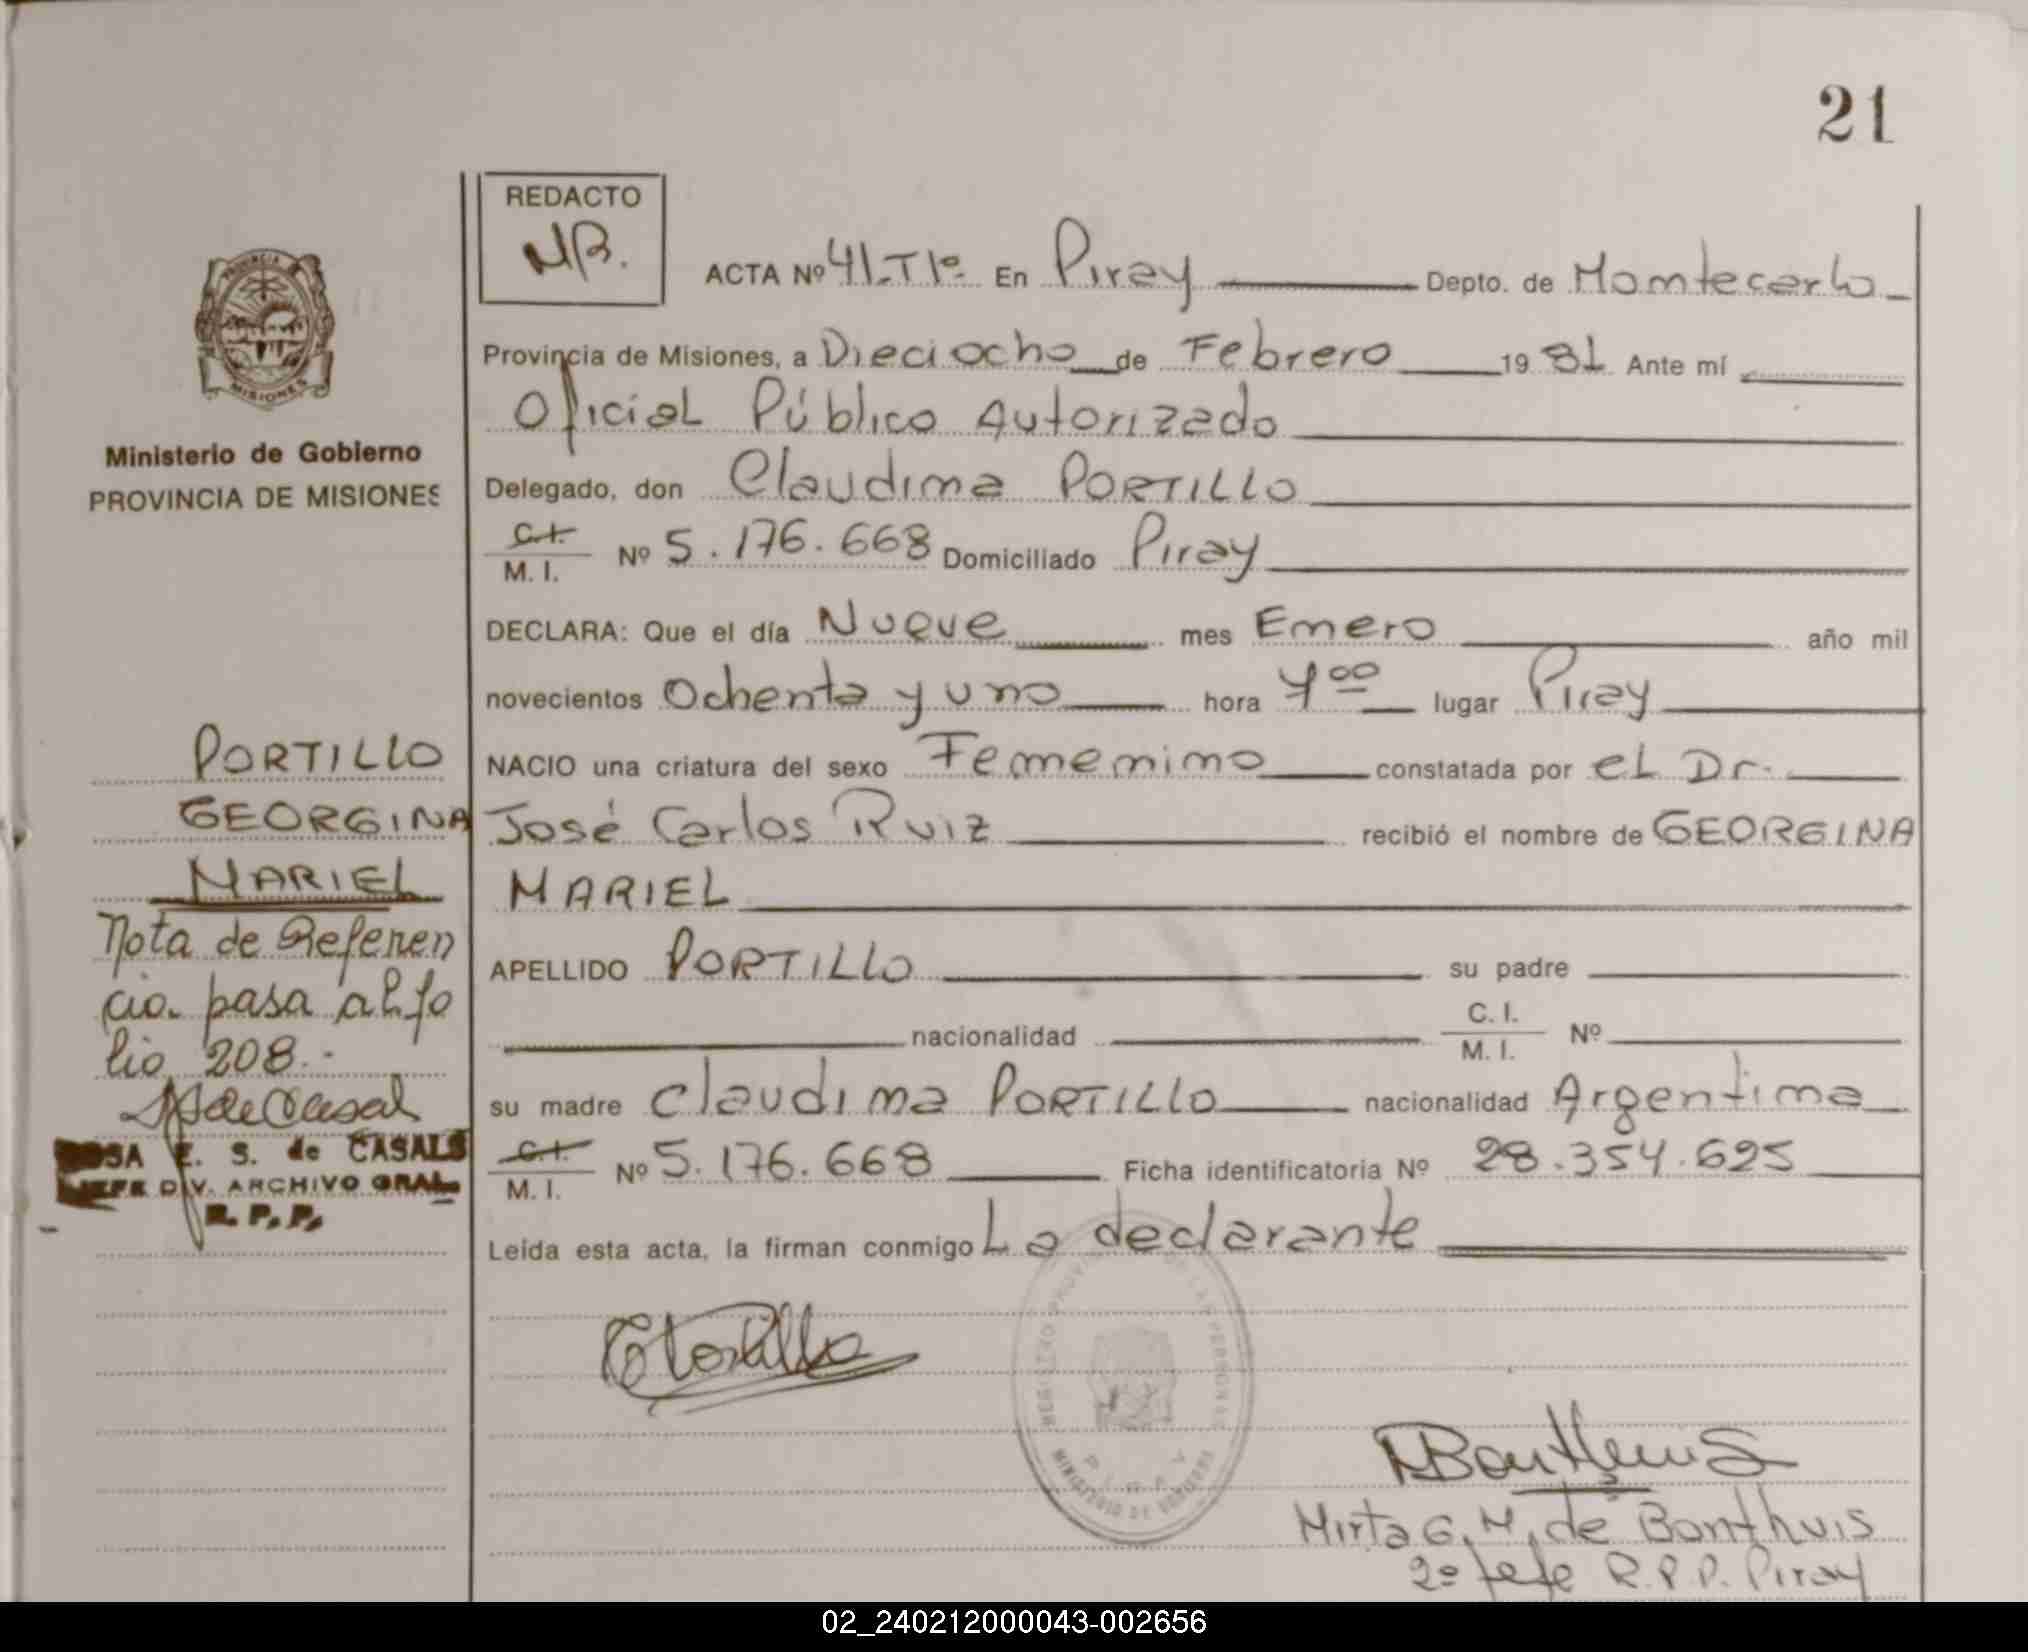 21
REDACTO
MB.
ACTA Nº 41-T1º En Piray Depto. de Montecarlo
Provincia de Misiones, a Dieciocho de Febrero 1981 Ante mí
Oficial Público Autorizado
Delegado, don Claudina PORTILLO
C.I. / M. I. Nº 5.176.668 Domiciliado Piray
DECLARA: Que el día Nueve mes Enero año mil
novecientos Ochenta y uno hora 4 00 lugar Piray
NACIO una criatura del sexo Femenino constatada por el Dr.
José Carlos Ruiz recibió el nombre de GEORGINA
MARIEL
APELLIDO PORTILLO su padre
nacionalidad C. I. / M. I. Nº
su madre Claudina PORTILLO nacionalidad Argentina
C.I. / M. I. Nº 5.176.668 Ficha identificatoria Nº 28.354.625
Leída esta acta, la firman conmigo La declarante
CPortillo
MBonthuis
Mirta G. M. de Bonthuis
2º Jefe R.P.P. Piray
PROVINCIA DE
MISIONES
Ministerio de Gobierno
PROVINCIA DE MISIONES
PORTILLO
GEORGINA
MARIEL
Nota de Referen
cia. pasa al fo
lio 208.-
de Casal
E. S. de CASALS
JEFE DIV. ARCHIVO GRAL.
R. P. P.
REGISTRO PROVINCIAL DE LAS PERSONAS
PIRAY
MINISTERIO DE GOBIERNO
02_240212000043-002656